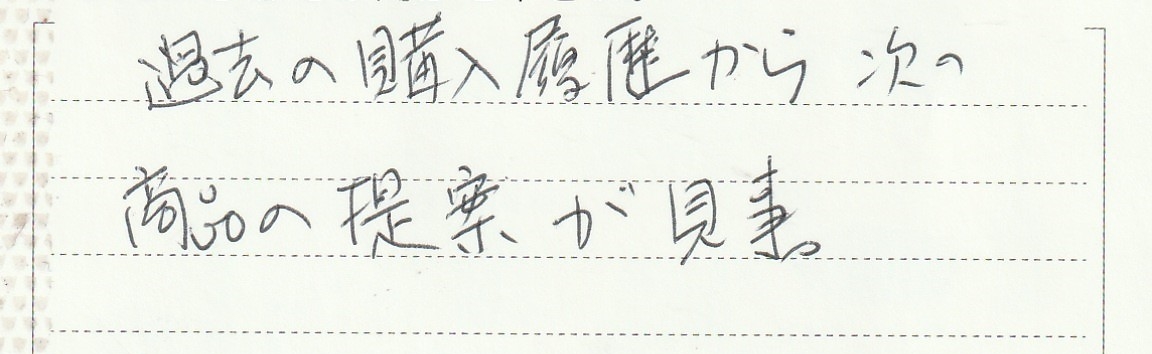 過去の購入履歴から次の
商品の提案が見事。